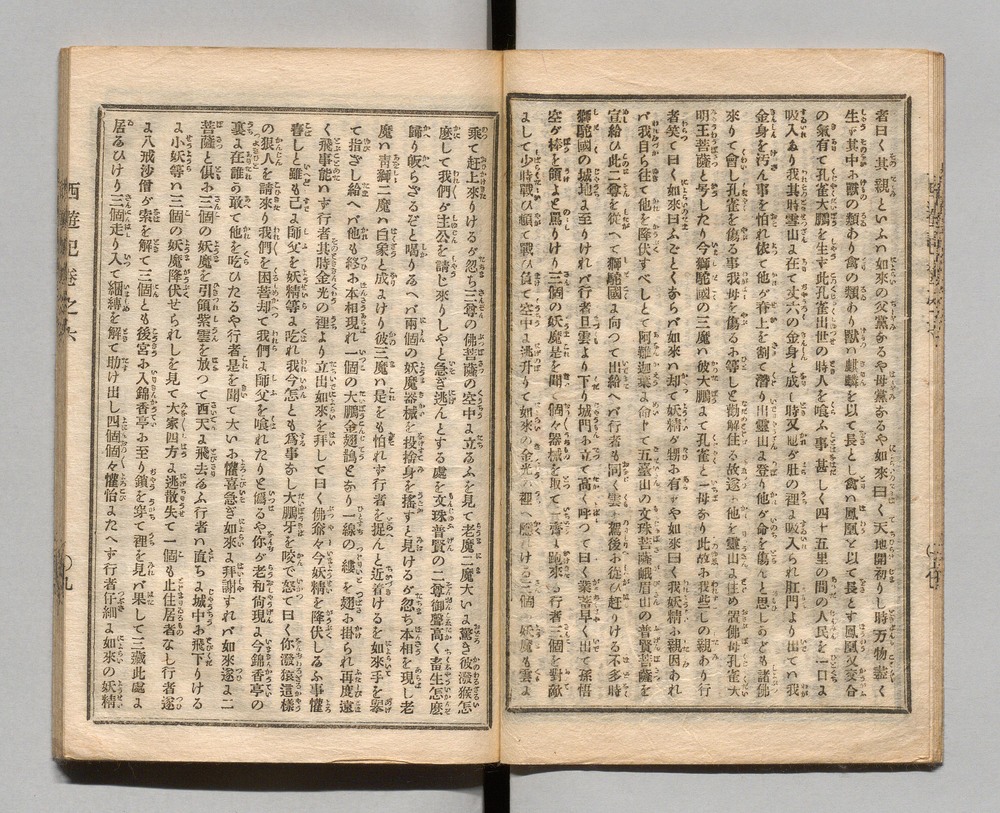 者曰く其親といふハ如來の父黨なるや母黨なるや如來曰く天地開初りし時万物盡く
生ず其中ふ獸の類あり禽の類あり獸ハ麒麟を以て長とし禽ハ鳳凰と以て長とす鳳凰又交合
の氣有て孔雀大鵬を生ず此孔雀出世の時人を喰ふ事甚しく四十五里の間の人民を一口よ
吸入あり我其時雪山よ在て丈六の金身と成し時又他が肚の裡よ吸入られ肛門より出てハ我
金身を汚ん事を怕れ依て他が脊上を割て潛り出靈山よ登り他が命を傷んと思しあども諸佛
來りて會し孔雀を傷る事我母を傷るふ等しと勸解住る故遂ふ他を靈山よ住め置佛母孔雀大
明王菩薩と号したり今獅駝國の三魔ハ彼大鵬よて孔雀と一母なり此故ふ我些しの親あり行
者笑て曰く如來曰ふごとくならバ如來ハ却て妖精が甥ふ有ずや如來曰く我妖精ふ親因あれ
バ我自ら往て他を降伏すべしとて阿難迦葉よ命じて五臺山の文珠菩薩峨眉山の普賢菩薩を
宣給ひ此二尊を從へて獅駝國よ向つて出給へバ行者も同く雲ふ駕後ふ從ひ赶りける不多時
獅駝國の城地よ至りけれバ行者旦雲より下り城門ふ立て高く呼つて曰く業畜早く出て孫悟
空が棒を領よと罵りけり三個の妖魔是を聞て個々器械を取て一齊よ跑來る行者三個を對敵
よして少時戰ひ頓て戰ひ負て空中よ逃升りて如來の金光の裡へ隱れける三個の妖魔も雲よ
乘て赶上來りけるが忽ち三尊の佛菩薩の空中よ立るふを見て老魔二魔大いよ驚き彼潑猴怎
麽して我們が主公を請じ來りしやと急ぎ逃んとする處を文珠普賢の二尊御聲高く畜生怎麽
歸り皈らざるぞと喝りるへバ兩個の妖魔器械を投捨身を搖すと見けるが忽ち本相を現し老
魔ハ靑獅二魔ハ白象と成よけり彼三魔ハ是をも怕れず行者を捉んと近着けるを如來手を擧
て指ざし給へバ他も終ふ本相現れ一個の大鵬金翅鵰となり一線の縷を翅ふ掛られ再度遠
く飛事能ハず行者其時金光の裡より立出如來を拜して曰く佛爺々今妖精を降伏しるふ事懽
喜しと雖も己よ師父を妖精等よ吃れ我今怎とも爲事なし大鵬牙を咬て怒て曰く你潑猿這樣
の狠人を請來り我們を困苦却て我們よ師父を喰れたりと僞るや你が老和尙現よ今錦香亭の
裏よ在誰う敢て他を吃ひたるや行者是を聞て大いふ懽喜急ぎ如來よ拜謝すれバ如來遂よ二
菩薩と俱ふ三個の妖魔を引領紫雲を放つて西天よ飛去るふ行者ハ直ちよ城中ふ飛下りける
よ小妖等ハ三個の妖魔降伏せられしを見て大家四方よ逃散失て一個も止住居者なし行者遂
よ八戒沙僧が索を解て三個とも後宮ふ入錦香亭ふ至り鎖を穿て裡を見れバ果して三藏此處よ
居るひけり三個走り入て綑縛を解て助け出し四個個々懽怡よたへず行者仔細よ如來の妖精
西遊記卷之六
〇九